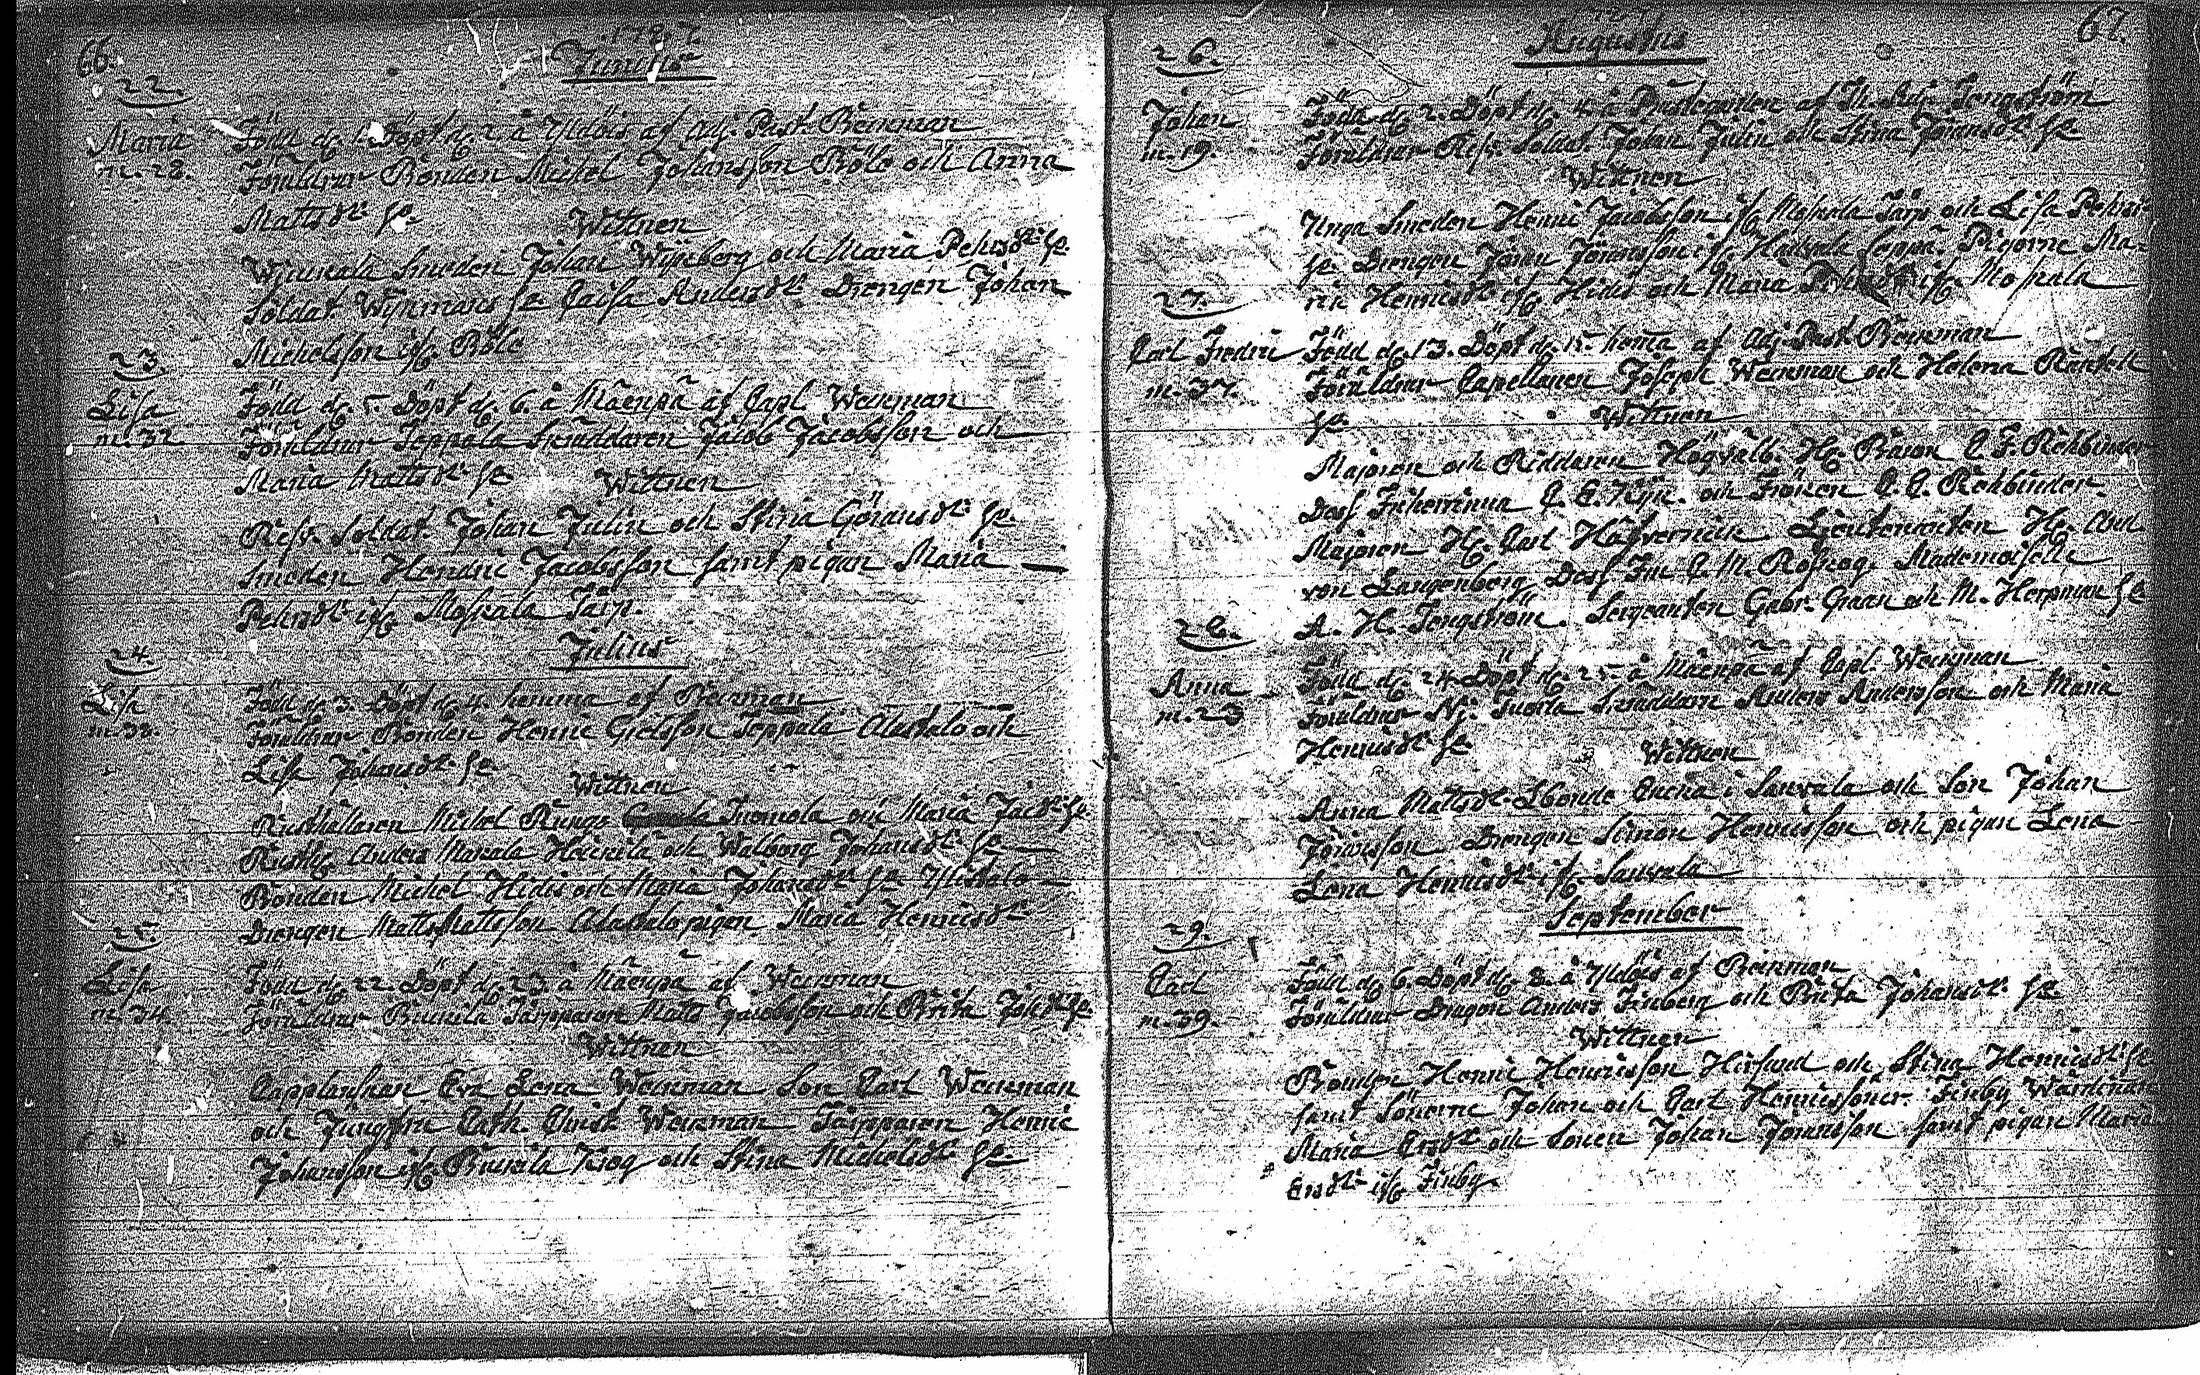 66.
1787
Junius
22.
Maria
m. 28.
Född d. 1. Döpt d. 2. å Yldöis af Adj. Past. Beckman
Föräldrar Bonden Michel Johansson Böle och Anna
Matts dr. h.
Wittnen
Smeden Johan Wijkberg och Maria Pehrs dr. h.
Soldat. Wijkmans h. Caisa Anders dr. Drengen Johan
Michelsson ifr. Böle
23.
Lisa
m. 32
Född d. 5. Döpt d. 6. å Mäenpä af Capl. Weckman
Föräldrar Seppälä Skräddaren Jacob Jacobsson och
Maria Matts dr. h.
Wittnen
Resv. Soldat. Johan Julin och Stina Görans dr. h.
Smeden Henric Jacobsson samt pigan Maria
Pehrs dr. ifr. Moskala Tårp.
Julius
24.
Lisa
m. 38.
Född d. 3. Döpt d. 4. hemma af Beckman
Föräldrar Bonden Henric Grelsson Seppälä Alastalo och
Lisa Johans dr. h.
Wittnen
Rusthållaren Michel Rungo och Maria Jac dr. h.
Rusth. Anders Mansala Heickilä och Walborg Johans dr. h.
Bonden Michel Hidis och Maria Johans dr. h. Ylistalo
Drengen Matts Mattsson Alastalo pigan Maria Henrics dr.
25.
Lisa
m. 34.
Född d. 22 Döpt d. 23 å Mäenpä af Weckman
Föräldrar Tårpparen Matts Jacobsson och Brita Joh dr. h.
Wittnen
Capplanskan Eva Lena Weckman Son Carl Weckman
och Jungfru Cath. Christ. Weckman Tårpparen Henric
Johansson ifr. Krog och Stina Michels dr. h.
67.
Augustus
26.
Johan
m. 19.
Född d. 2. Döpt d. 4. å Prästegården af Adj. Tengström
Föräldrar Resv. Soldat. Johan Julin och Stina Jörans dr. h.
Wittnen
Unga Smeden Henric Jacobsson ifr. Moskala Tårp och Lisa Pehrs
h. Drengen Jöran Jöransson ifr. Seppä. Pigorne Ma-
ria Henrics dr. ifr. Hidis och Maria ifr. Moskala
27.
Carl Fredric
m. 37.
Född d. 13. Döpt d. 15. hema af Adj. Past. Beckman
Föräldrar Capellanen Joseph Weckman och Helena
h.
Wittnen
Majoren och Riddaren Högvälb. Hr. Baron C. F. Rehbinder
Dess Friherrinna och Fröken C. C. Rehbinder.
Majoren Hr. Carl Lieutenanten Hr. Carl
von Langenberg, Dess Fru C. M. Mademoiselle
A. H. Tengström. Sergeanten Gabr. Graan och M. Herpman h.
28.
Anna
m. 23
Född d. 24. Döpt d. 25. å Mäenpä af Capl. Weckman
Föräldrar Skräddaren Anders Andersson och Maria
Henrics dr. h.
Wittnen
Anna Matts dr. Lbonde Enckia i Sauvala och Son Johan
Jöransson Drengen Simon Henricsson och pigan Lena
Lena Henrics dr. ifr. Sauvala
September
29.
Carl
m. 39.
Född d. 6. Döpt d. 8. å Yldöis af Beckman
Föräldrar Dragon Anders Finberg och Brita Johans dr. h.
Wittnen
Bonden Henric Henricsson Hirsund och Stina Henrics dr. h.
samt Sönerne Johan och Carl Henricssöner. Finby Wärdinnan
Maria Ers dr. och Sonen Johan Jöransson samt pigan Maria
Ers dr. ifr. Finby